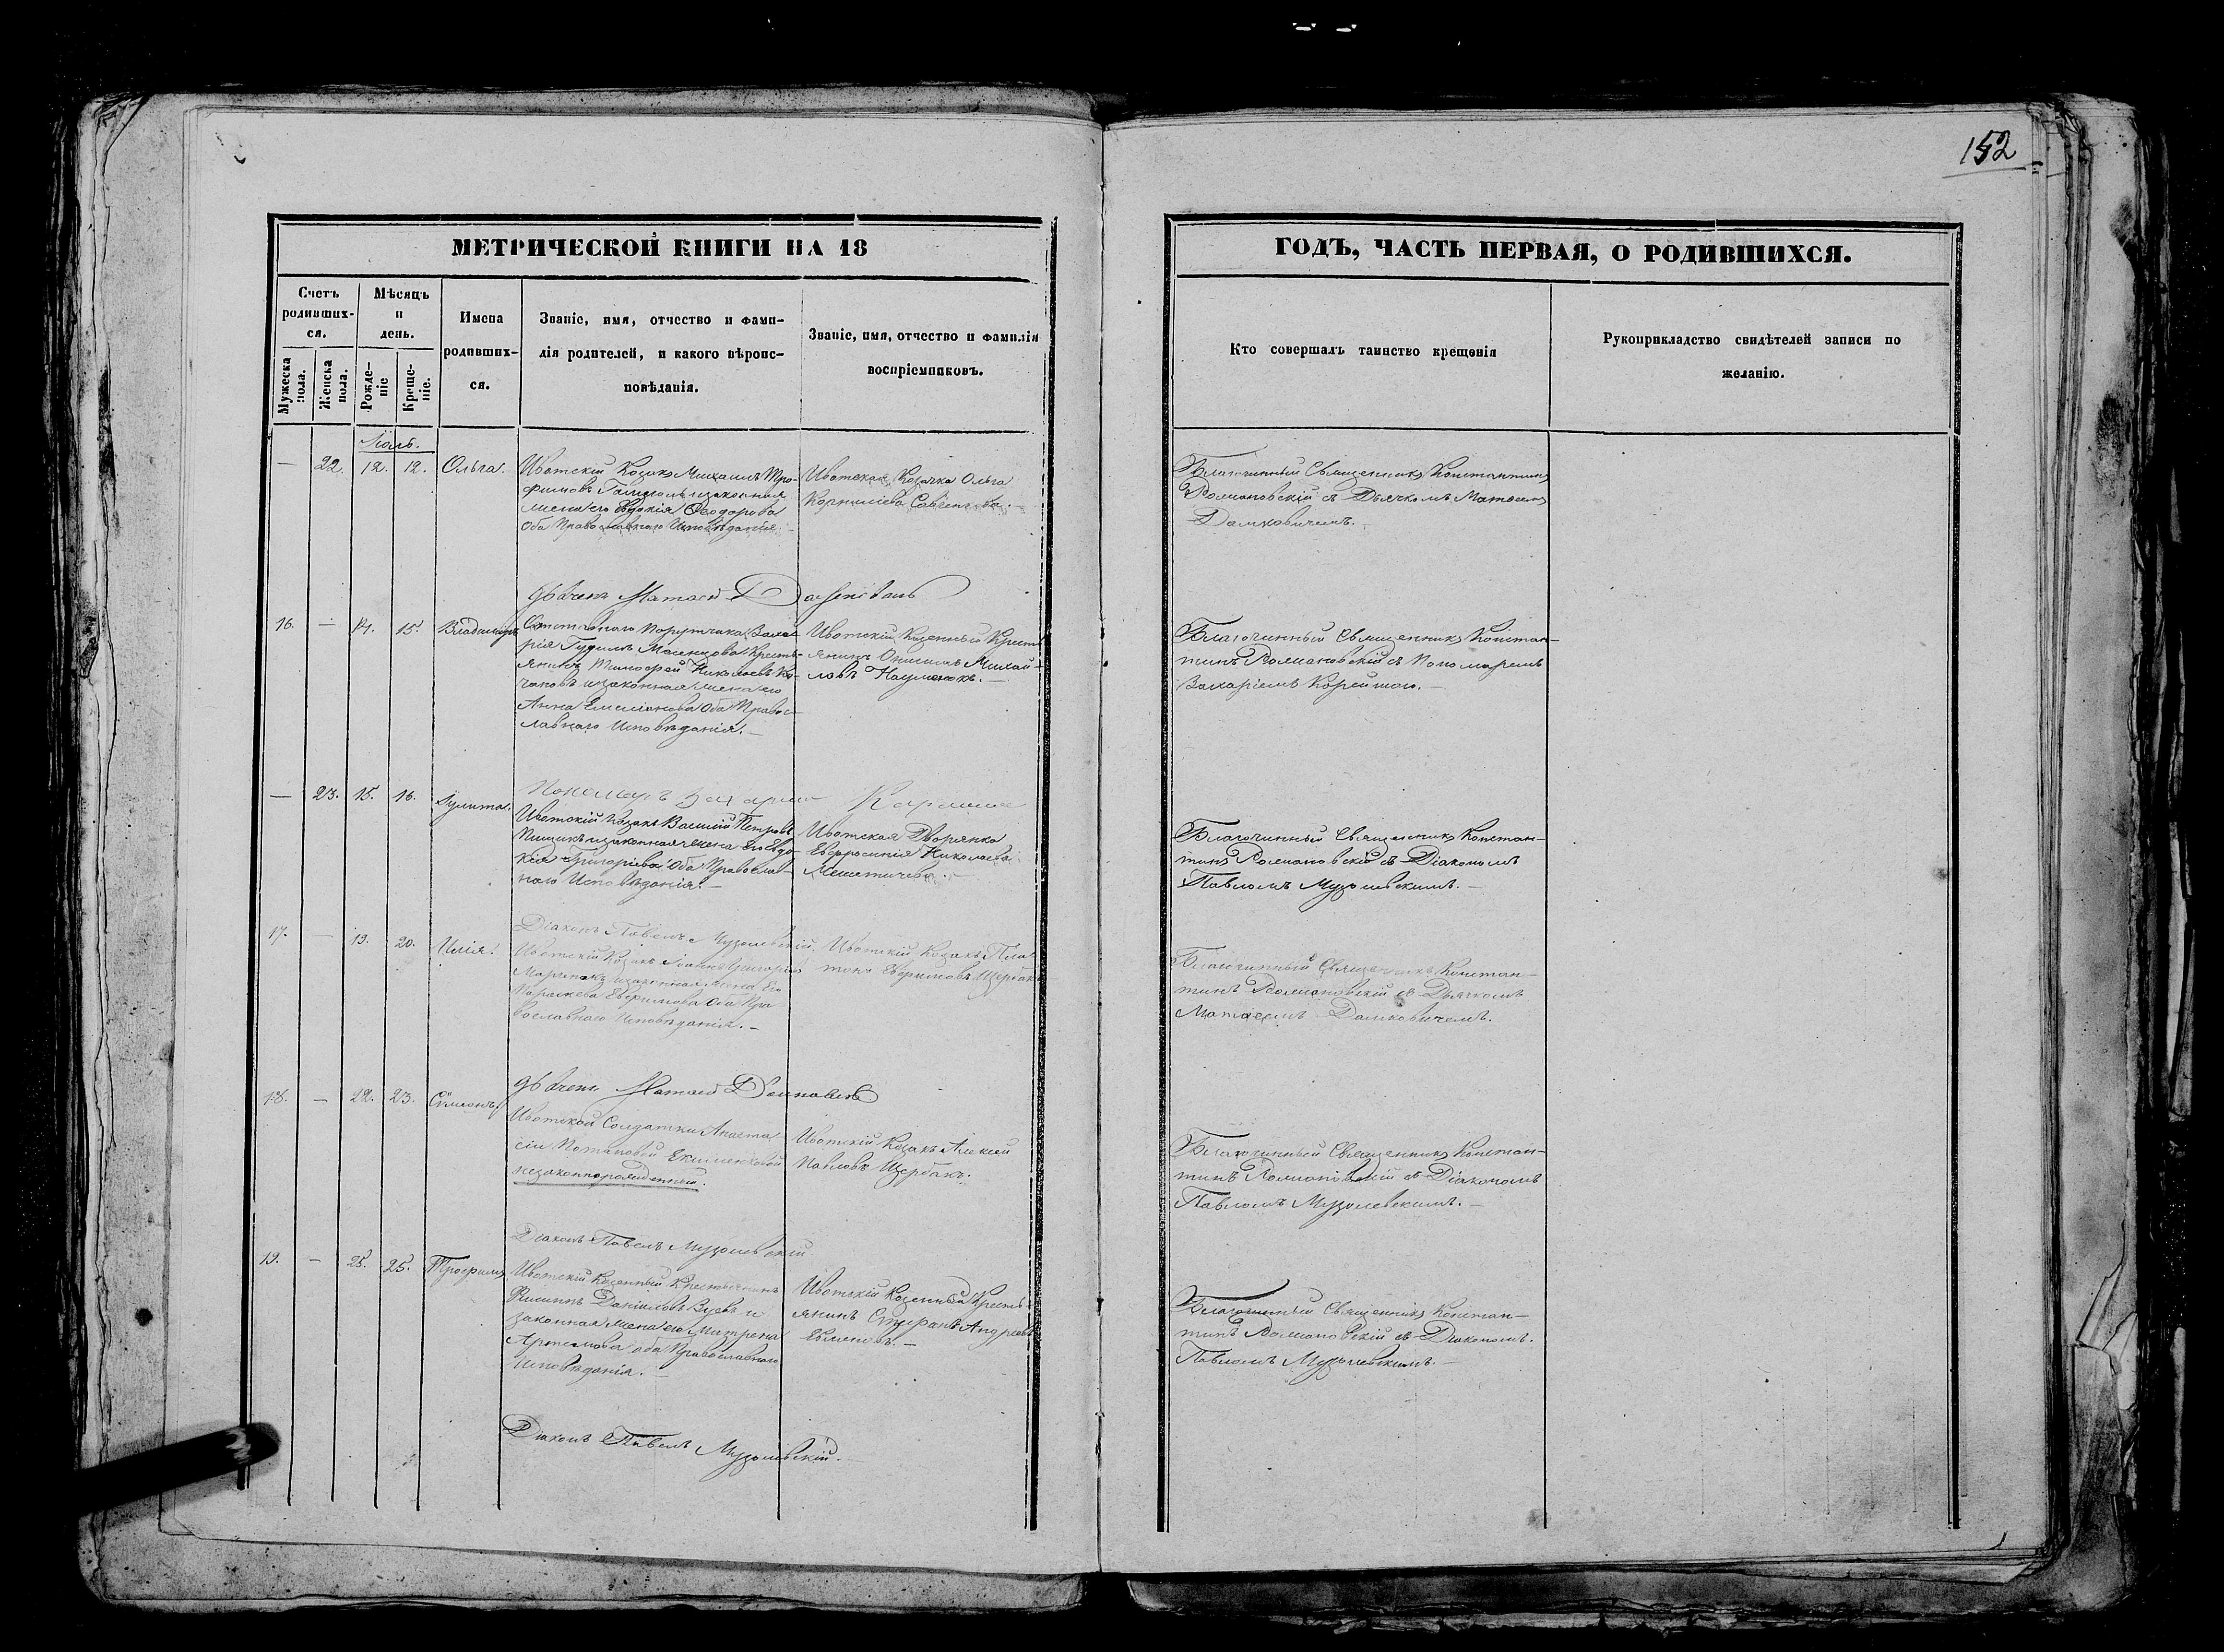 152
МЕТРИЧЕСКОЙ КНИГИ НА 18
ГОДЪ, ЧАСТЬ ПЕРВАЯ, О РОДИВШИХСЯ.
Счетъ родивших-ся.
Мужеска пола.
Женска пола.
Мѣсяцъ и день.
Рожде-ніе
Креще-ніе.
Имена родивших-ся.
Званіе, имя, отчество и фами-
лія родителей, и какого вѣроис-
повѣданія.
Званіе, имя, отчество и фамилія
воспріемниковъ.
Кто совершалъ таинство крещенія
Рукоприкладство свидѣтелей записи по
желанію.
Іюль.
— 22. 12. 12. Ольга.
Ивотскій Козакъ Михаилъ Тро-
фимовъ законная
жена его Евдокія Ѳеодорова
Оба Православнаго Исповѣданія.
Ивотская Козачка Ольга
Корниліева Савченкова.
Благочинный Священникъ Константинъ
Романовскій съ Дьячкомъ Матѳеемъ
Дьячекъ Матѳей
16. — 14. 15. Владиміръ
Порутчика
Кресть-
янинъ Тимофей Николаевъ
законная жена его
Анна Емеліанова Оба Правос-
лавнаго Исповѣданія. —
Ивотскій Казенный Кресть-
янинъ Михай-
ловъ Науменокъ. —
Благочинный Священникъ Констан-
тинъ Романовскій съ Пономаремъ
Захаріемъ
Пономарь Захарій
— 23. 15. 16. Іулита.
Ивотскій Козакъ Василій Петровъ
законная жена его Евдо-
кія Григоріева Оба Православ-
наго Исповѣданія. —
Ивотская Дворянка
Евфросинія Николаева
Благочинный Священникъ Констан-
тинъ Романовскій съ Діакономъ
Павломъ Музолевскимъ. —
Діаконъ Павелъ Музолевскій.
17. — 19. 20. Илія.
Ивотскій Козакъ Іоаннъ Григоріевъ
законная жена его
Параскева Ефимова Оба Пра-
вославнаго Исповѣданія. —
Ивотскій Козакъ Пла-
тонъ Ефимовъ Щербакъ
Благочинный Священникъ Констан-
тинъ Романовскій съ Дьячкомъ
Матѳеемъ
Дьячекъ Матѳей
18. — 22. 23. Симеонъ.
Ивотской Солдатки Анаста-
сіи Потаповой Екименковой
незаконнорожденный.
Ивотскій Козакъ Алексій
Павловъ Щербакъ.
Благочинный Священникъ Констан-
тинъ Романовскій съ Діакономъ
Павломъ Музолевскимъ. —
Діаконъ Павелъ Музолевскій
19. — 25. 25. Трофимъ
Ивотскій Казенный Крестьянинъ
Филиппъ Даніиловъ и
законная жена его Митрена
Артемова оба Православнаго
Исповѣданія. —
Ивотскій Казенный Кресть-
янинъ Стефанъ Андреевъ
Благочинный Священникъ Констан-
тинъ Романовскій съ Діакономъ
Павломъ Музолевскимъ. —
Діаконъ Павелъ Музолевскій.